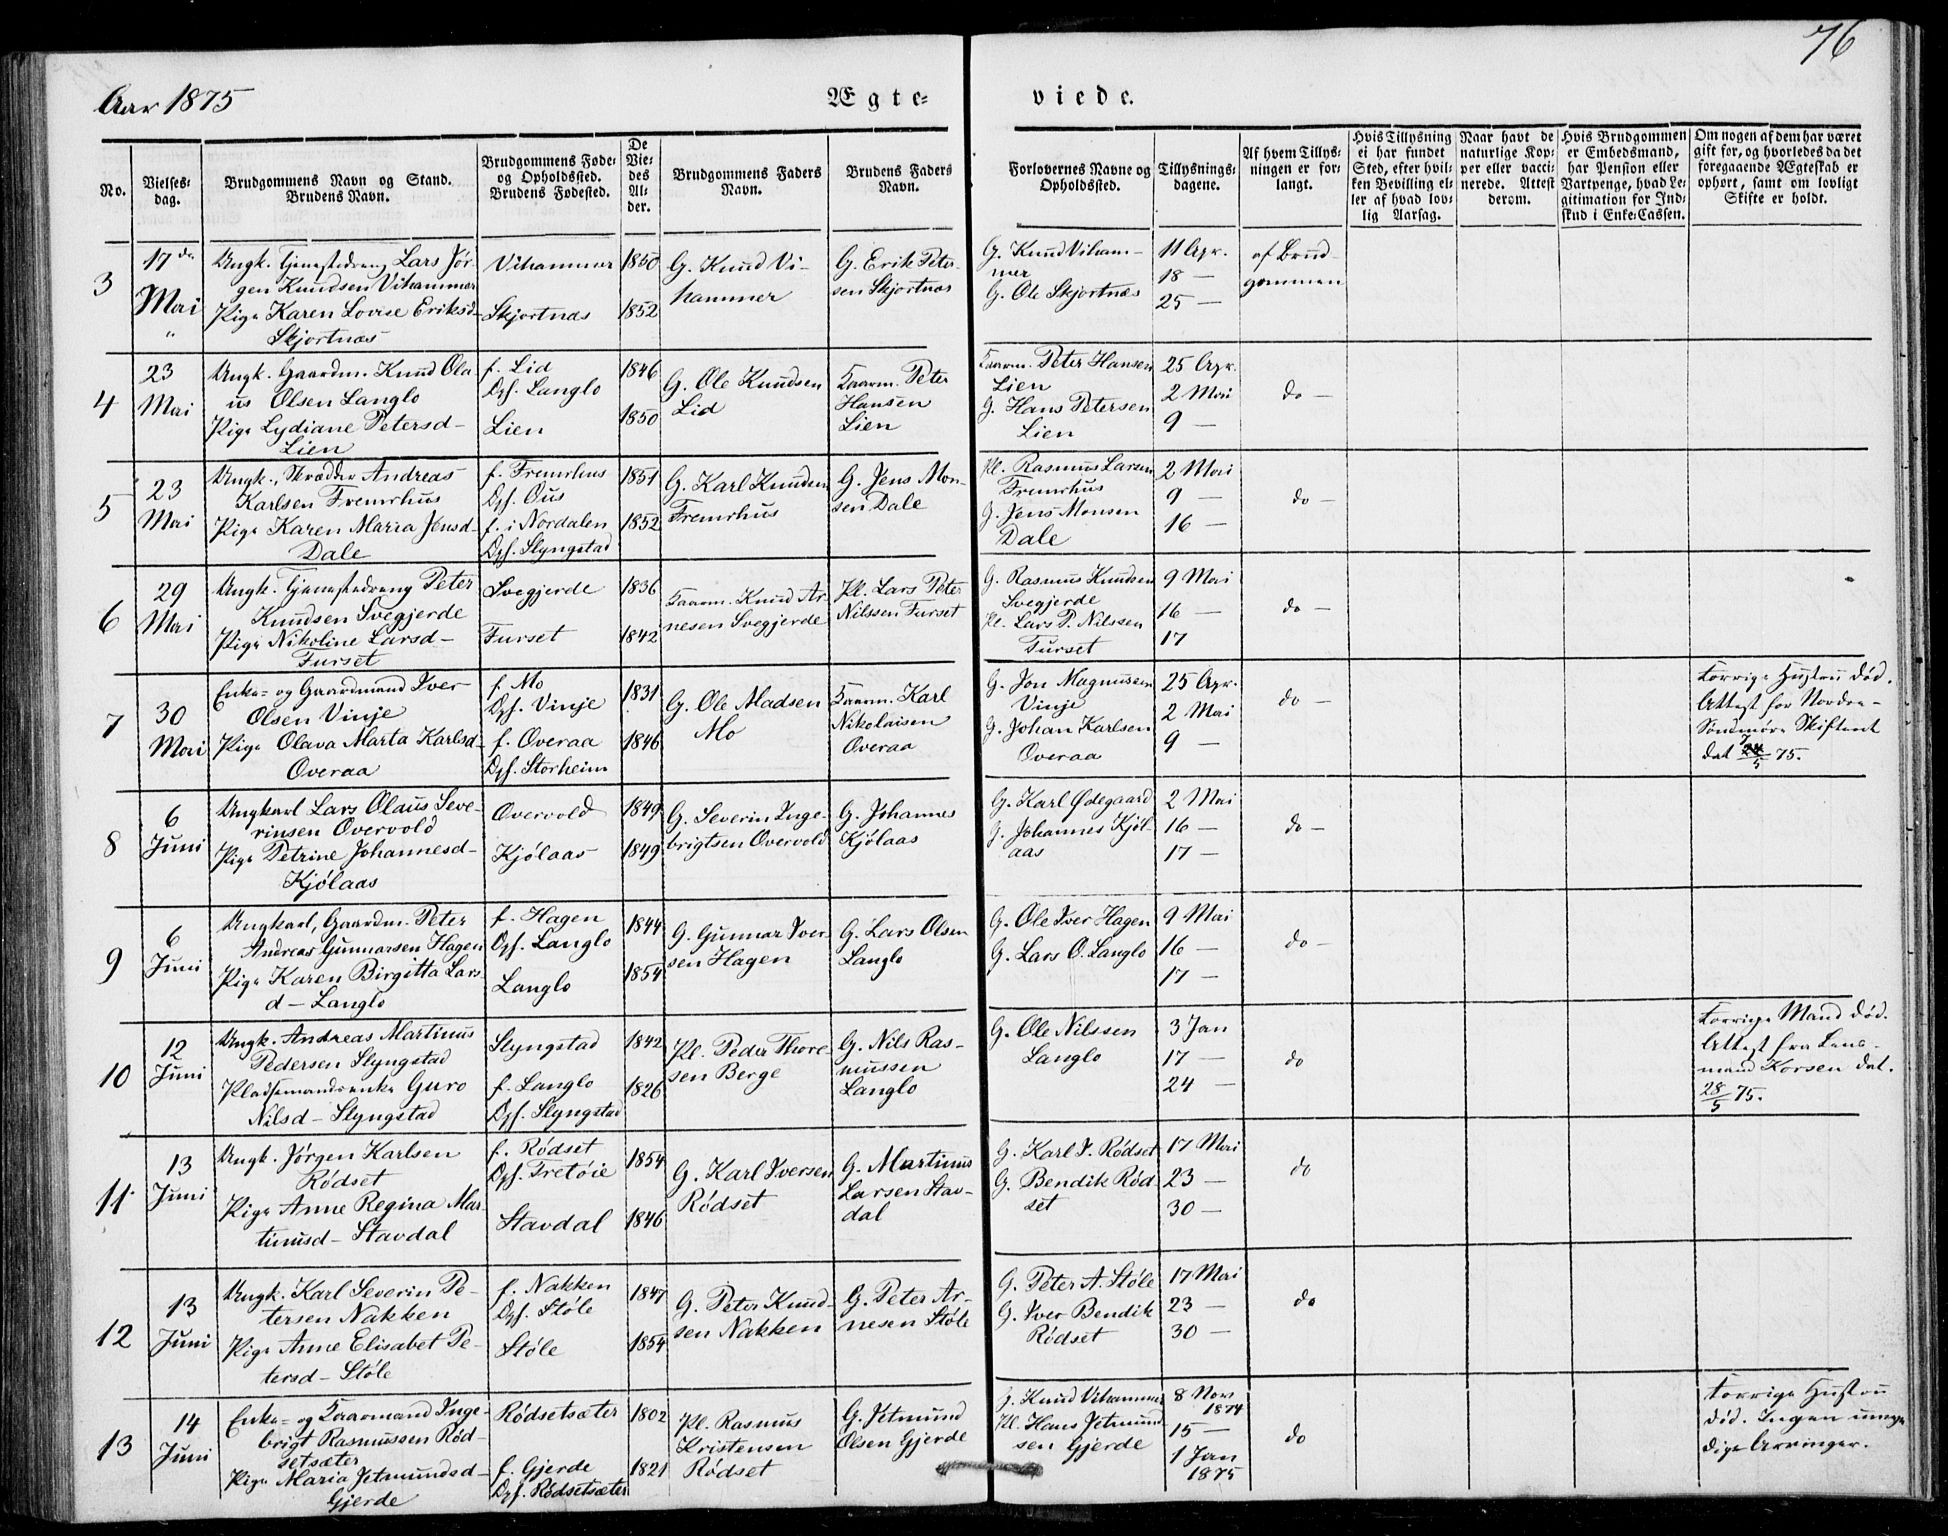 76
Aar 1875
Ægte-
viede.
No.
Vielses-
dag.
Brudgommens Navn og Stand.
Brudens Navn.
Brudgommens Føde-
og Opholdssted.
Brudens Fødested.
De
Vie-
des
Al-
der.
Brudgommens Faders
Navn.
Brudens Faders
Navn.
Forlovernes Navne og
Opholdssted.
Tillysnings-
dagene.
Af hvem Tillys-
ningen er for-
langt.
Hvis Tillysning
ei har fundet
Sted, efter hvil-
ken Bevilling el-
ler af hvad lov-
lig Aarsag.
Naar havt de
naturlige Kop-
per eller vacci-
nerede. Attest
derom.
Hvis Brudgommen
er Embedsmand,
har Pension eller
Vartpenge, hvad Le-
gitimation for Ind-
skud i Enke-Cassen.
Om nogen af dem har været
gift for, og hvorledes da det
foregaaende Ægteskab er
ophørt, samt om lovligt
Skifte er holdt.
3
17de
Mai
"
Ungk. Tjenestedreng Lars Jør-
gen Knudsen Vihammer
Pige Karen Lovise Eriksd-
Skjortnæs
Vihammer
Skjortnæs
1850
1852
G. Knud Vi-
hammer
G. Erik Peter-
sen Skjortnæs
G. Knud Viham-
mer
G. Ole Skjortnæs
11 Apr.
18 —
25 —
af Brud-
gommen
4
23
Mai
Ungk. Gaardm. Knud Ola-
us Olsen Langlo
Pige Lydiane Petersd-
Lien
f. Lid
Opf. Langlo
Lien
1846
1850
G. Ole Knudsen
Lid
Kaarm. Peter
Hansen
Lien
Kaarm. Peter Hansen
Lien
G. Hans Petersen
Lien
25 Apr.
2 Mai
9 —
do —
5
23
Mai
Ungk., Skrædder Andreas
Karlsen Fremrhus
Pige Karen Maria Jensd-
Dale
f. Fremrhus
Opf. Ous
f. i Nordalen
Opf. Slyngstad
1851
1852
G. Karl Knudsen
Fremrhus
G. Jens Mon-
sen Dale
Pl. Rasmus Larsen
Fremrhus
G. Jens Monsen
Dale
2 Mai
9 —
16 —
do —
6
29
Mai
Ungk. Tjenestedreng Peter
Knudsen Svegjerde
Pige Nikoline Larsd-
Furset
Svegjerde
Furset
1836
1842
Kaarm. Knud Ar-
nesen Svegjerde
Pl. Lars Peter
Nilssen Furset
G. Rasmus Knudsen
Svegjerde
Pl. Lars P. Nilssen
Furset
9 Mai
16 —
17
do —
7
30
Mai
Enke- og Gaardmand Iver
Olsen Vinje
Pige Olava Marta Karlsd-
Overaa
f. Mo
Opf. Vinje
f. Overaa
Opf. Storheim
1831
1846
G. Ole Madsen
Mo
Kaarm. Karl
Nikolaisen
Overaa
G. Jon Magnussen
Vinje
G. Johan Karlsen
Overaa
25 Apr.
2 Mai
9 —
do —
Forrige Hustru død.
Attest for Nordre-
Søndmøre Skifteret
dat 7/5 75.
8
6
Juni
Ungkarl Lars Olaus Seve-
rinsen Overvold
Pige Petrine Johannesd-
Kjølaas
Overvold
Kjølaas
1849
1849
G. Severin Inge-
brigtsen Overvold
G. Johannes
Kjølaas
G. Karl Ødegaard
G. Johannes Kjøl-
aas
2 Mai
16 —
17 —
do —
9
6
Juni
Ungkarl, Gaardm. Peter
Andreas Gunnarsen Hagen
Pige Karen Birgitta Lars
d- Langlo
f. Hagen
Opf. Langlo
Langlo
1844
1854
G. Gunnar Iver-
sen Hagen
G. Lars Olsen
Langlo
G. Ole Iver Hagen
G. Lars O. Langlo
9 Mai
16 —
17 —
do —
10
12
Juni
Ungk. Andreas Martinus
Pedersen Slyngstad
Pladsemandsenke Guro
Nilsd- Slyngstad
Slyngstad
f. Langlo
Opf. Slyngstad
1842
1826
Pl. Peder Thore-
sen Berge
G. Nils Ras-
mussen
Langlo
G. Ole Nilssen
Langlo
3 Jan
17 —
24 —
do
Forrige Mand død.
Attest fra Lens-
mand Korsen dat.
28/5 75.
11
13
Juni
Ungk. Jørgen Karlsen
Rødset
Pige Anne Regina Mar-
tinusd- Stavdal
f. Rødset
Opf. Tretøie
Stavdal
1854
1846
G. Karl Iversen
Rødset
G. Martinus
Larsen Stav-
dal
G. Karl I. Rødset
G. Bendik Rød-
set
17 Mai
23 —
30 —
do
12
13
Juni
Ungk. Karl Severin Pe-
tersen Nakken
Pige Anne Elisabet Pe-
tersd- Støle
f. Nakken
Opf. Støle
Støle
1847
1854
G. Peter Knud-
sen Nakken
G. Peter Ar-
nesen Støle
G. Peter A. Støle
G. Iver Bendik
Rødset
17 Mai
23 —
30 —
do
13
14
Juni
Enke- og Kaarmand Inge-
brigt Rasmussen Rød-
setsæter
Pige Maria Jetmundsd-
Gjerde
Rødsetsæter
f. Gjerde
Opf. Rødsetsæter
1802
1821
Pl. Rasmus
Kristensen
Rødset
G. Jetmund
Olsen Gjerde
G. Knud Vihammer
Pl. Hans Jetmund-
sen Gjerde
8 Nov
1874
15 —
1 Jan
1875
do
Forrige Hustru
død. Ingen umyn
dige Arvinger.